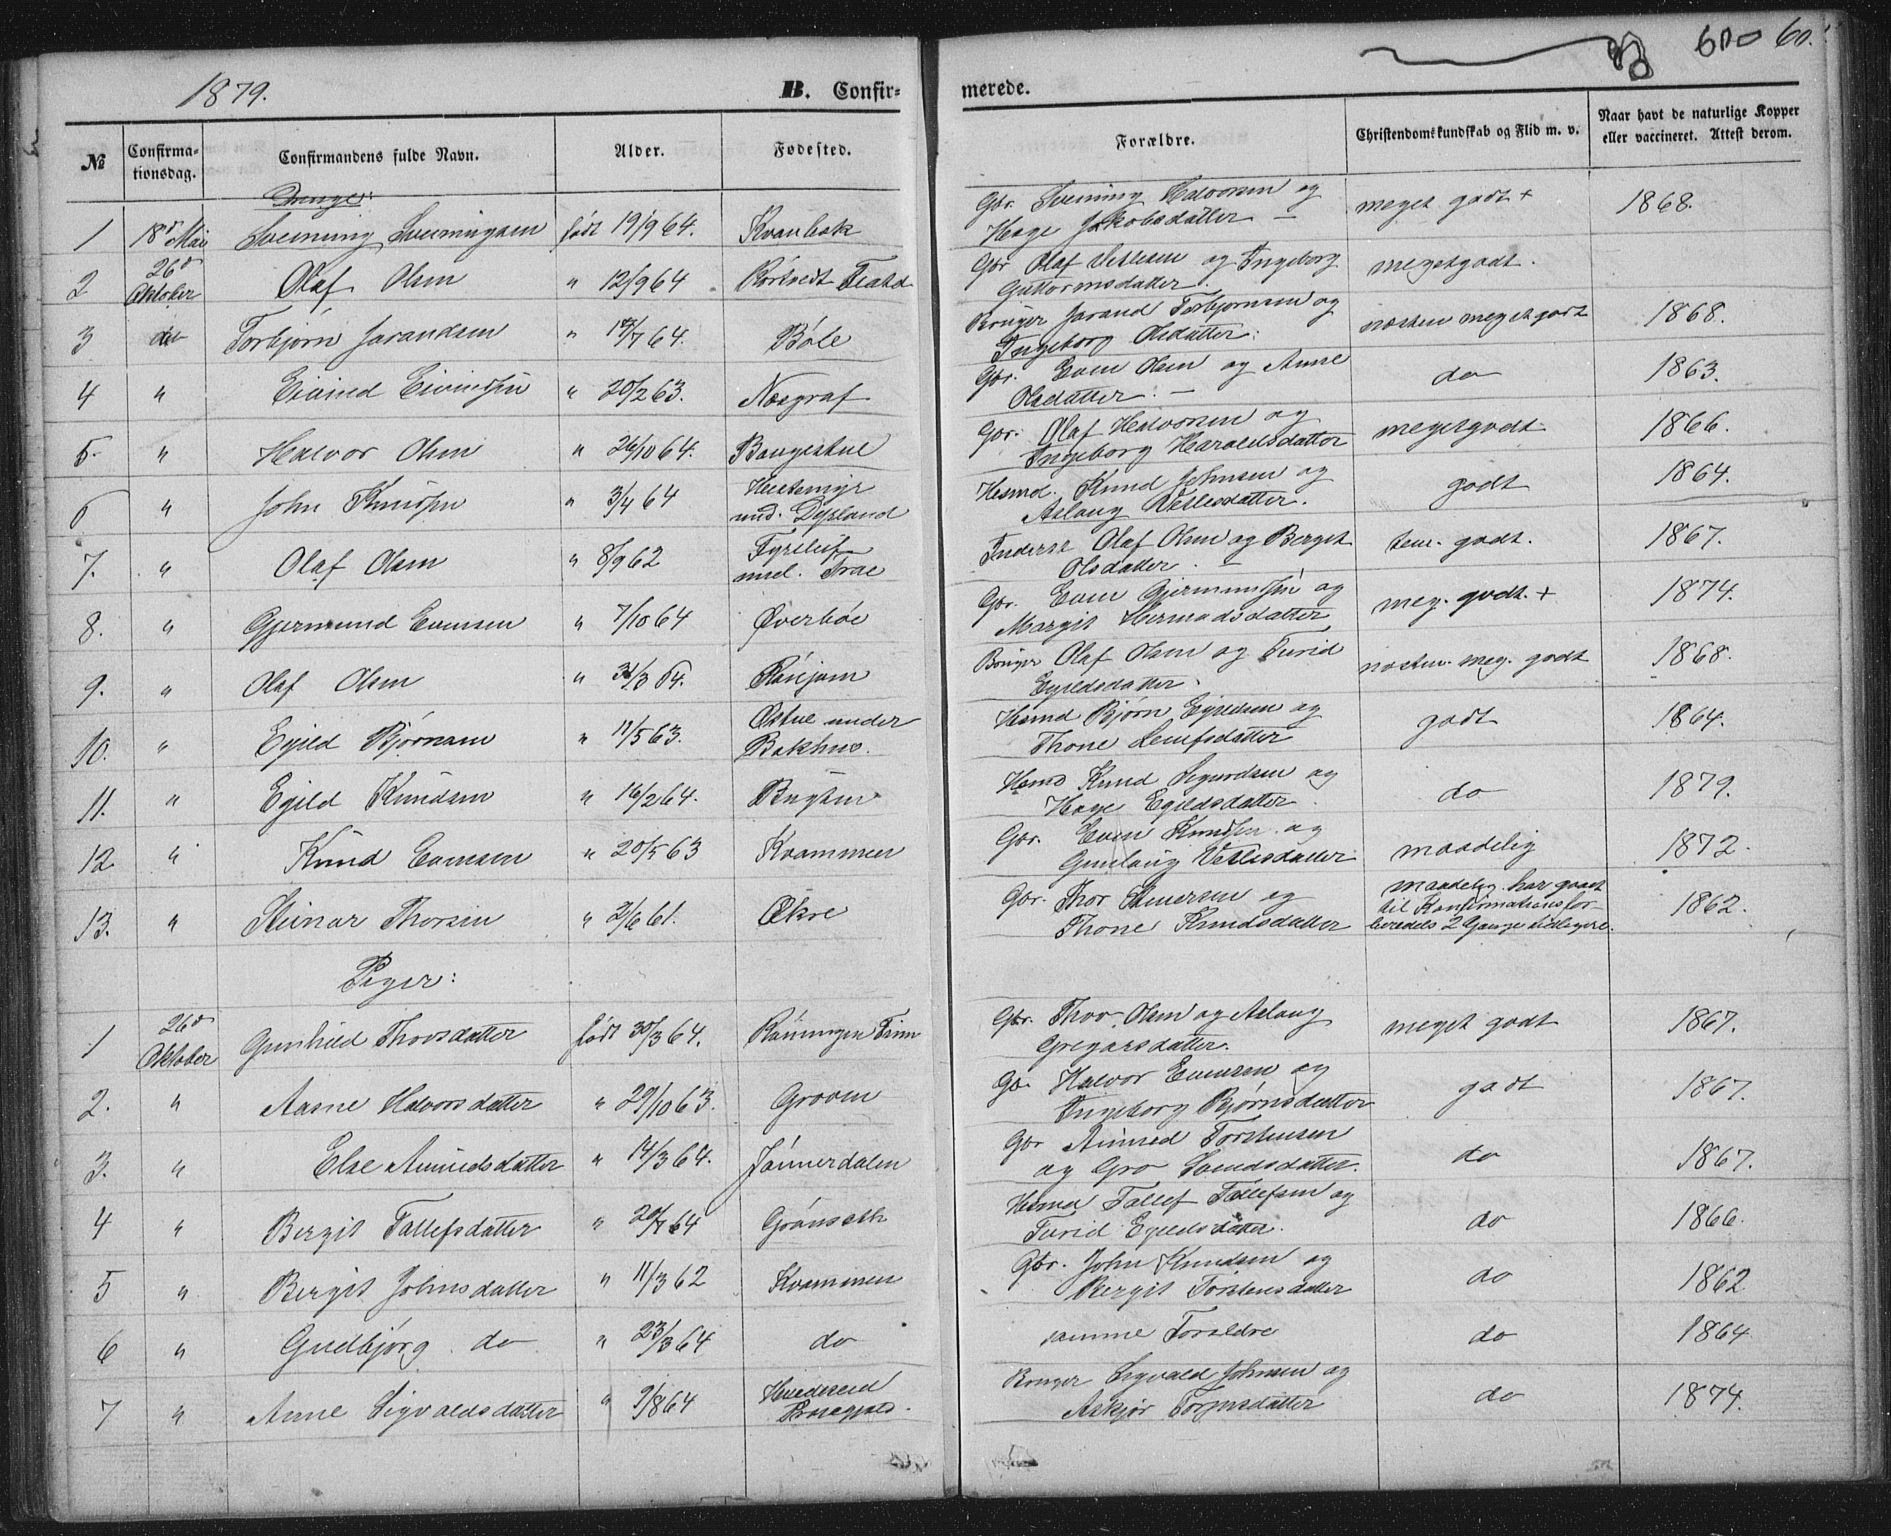 1879.
B. Confirmerede.
60
№ | Confirmationsdag. | Confirmandens fulde Navn. | Alder. | Fødested. | Forældre. | Christendomskundskab og Flid m. v. | Naar havt de naturlige Kopper eller vaccineret. Attest derom.
Drenge:
1 | 18de Mai | Sveinung Sveinungsen | født 19/9 64. | Kvanbæk | Gbr. Sveinung Halvorsen og Hæge Jakobsdatter | meget godt + | 1868.
2 | 26de Oktober | Olaf Olsen | " 12/9 64 | | Gbr Olaf Vetlesen og Ingeborg Guttormsdatter. | megetgodt.
3 | do | Torbjørn Jarandsen | " 64. | Bøle | Bruger Jarand Torbjørnsen og Ingeborg Olsdatter. | næsten megetgodt | 1868.
4 | " | Eivind Eivindsen | " 20/2 63. | Næsgraf | Gbr. Even Olsen og Anne Olsdatter. | do | 1863.
5. | " | Halvor Olsen | " 26/10 64. | Baugestul | Gbr. Olaf Halvorsen og Ingeborg Haraldsdatter | megetgodt | 1866.
6 | " | John Knudsen | " 3/4 64 | und. Dysland | Husmd. Knud Johnsen og Aslaug Vetlesdatter. | godt | 1864.
7. | " | Olaf Olsen | " 8/9 62 | | Inderst Olaf Olsen og Bergit Olsdatter | tem. godt. | 1867.
8. | " | Gjermund Evensen | " 7/10 64 | Øverbøe | Gbr. Even Gjermundsen og Margit Hermodsdatter | meg. godt. + | 1874.
9. | " | Olaf Olsen | " 31/3 64. | | Bruger Olaf Olsen og Turid Egildsdatter. | næsten meg. godt | 1868.
10. | " | Egild Bjørnsen | " 11/5 63. | Østul under Bakhus. | Husmd Bjørn Egildsen og Thone Leifsdatter | godt | 1864.
11. | " | Egild Knudsen | " 16/2 64. | | Husmd Knud Sigurdsen og Hæge Egildsdatter | do | 1879.
12 | " | Knud Evensen | " 20/5 63 | Kvammen | Gbr. Even Knudsen og Gunlaug Vetlesdatter | maadelig | 1872.
13. | " | Steinar Thorsen | " 2/6 61. | Økre | Gbr. Thor Steinersen og Thone Knudsdatter | maadelig. har gaaet til Konfirmationsforberedels 2 Gange tidligere. | 1862.
Piger:
1 | 26de Oktober | Gunhild Thorsdatter | født 30/3 64. | Rønningen Tinn | Gbr. Thor Olsen og Aslaug Gregarsdatter. | meget godt | 1867.
2. | " | Aasne Halvorsdatter | " 29/10 63. | Groven | Gbr Halvor Evensen og Ingeborg Bjørnsdatter | godt | 1867.
3. | " | Else Amundsdatter | " 14/3 64. | Jønnerdalen | Gbr Amund Torstensen og Gro Svendsdatter. | do | 1867.
4 | " | Bergit Tallefsdatter | " 20/7 64 | Grønseth | Husmd Tallef Tallefsen og Turid Egildsdatter. | do | 1866.
5 | " | Bergit Johnsdatter | " 11/3 62 | Kvammen | Gbr. John Knudsen og Bergit Torstensdatter | do | 1862
6 | " | Gudbjørg do | " 23/3 64 | do | samme Forældre | do | 1864
7 | " | Anne Sigvaldsdatter | " 9/8 64 | Hvideseid Præstegjæld. | Bruger Sigvald Johnsen og Askjør Tormsdatter | do | 1874.